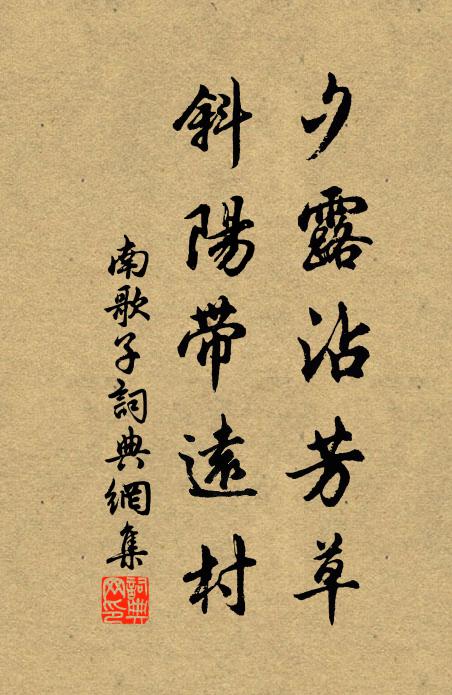 夕露沾芳草
斜陽帶遠村
南歌子詞典網集
詞典网印